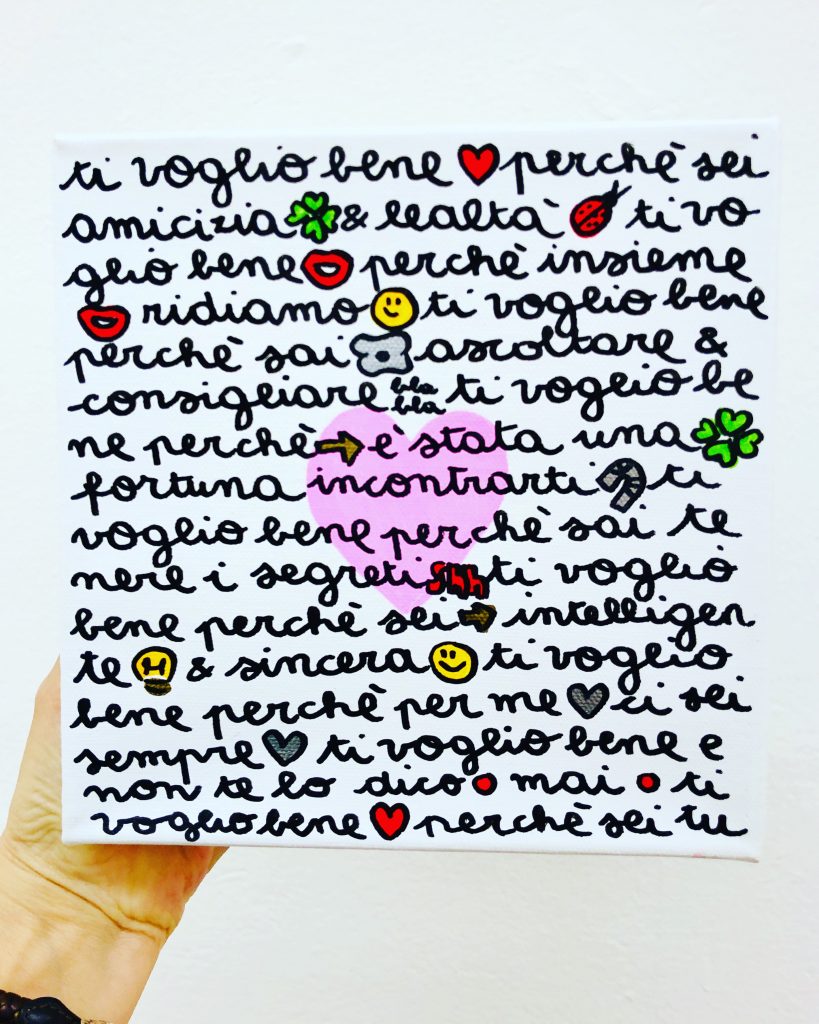 ti voglio bene perchè sei
amicizia & lealtà ti vo
glio bene perchè insieme
ridiamo ti voglio bene
perchè sai ascoltare &
consigliare bla bla ti voglio be
ne perchè è stata una
fortuna incontrarti ti
voglio bene perchè sai te
nere i segreti shh ti voglio
bene perchè sei intelligen
te & sincera ti voglio
bene perchè per me ci sei
sempre ti voglio bene e
non te lo dico mai ti
voglio bene perchè sei tu